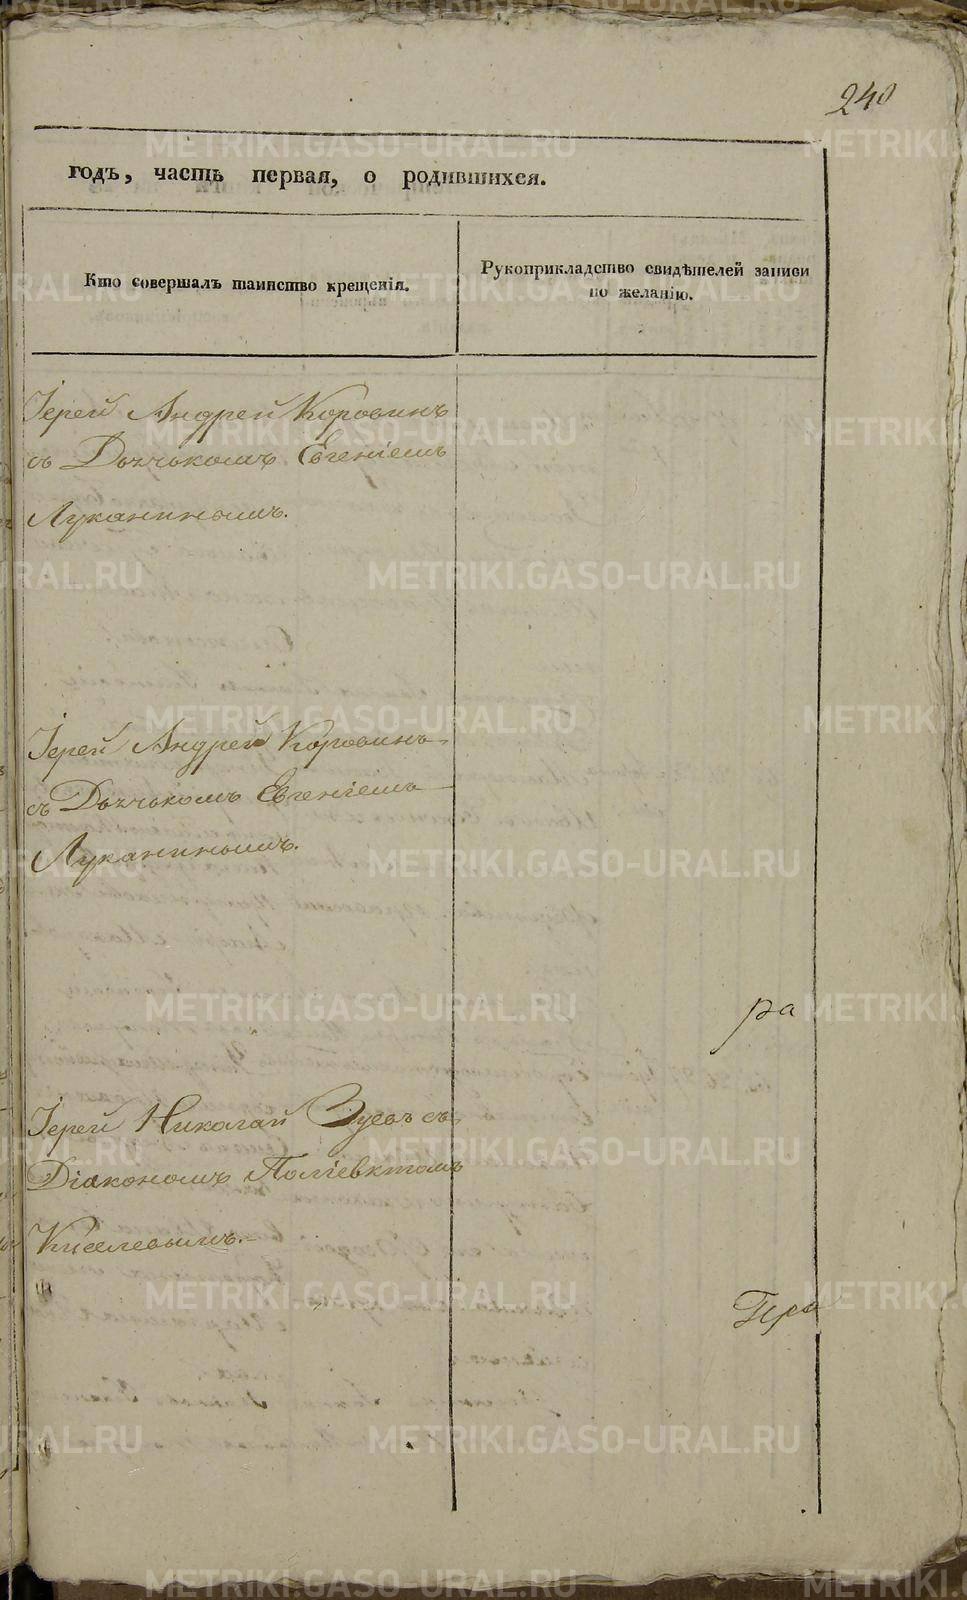 240
годъ, часть первая, о родившихся.
Кто совершалъ таинство крещенія.
Рукоприкладство свидѣтелей записи
по желанію.
Іерей Андрей Коровинъ
съ Дьячькомъ Евгеніемъ
Луканинымъ.
Іерей Андрей Коровинъ
съ Дьячькомъ Евгеніемъ
Луканинымъ.
ра
Іерей Николай Зуевъ съ
Діакономъ Поліевктомъ
Киселевымъ.
METRIKI.GASO-URAL.RU